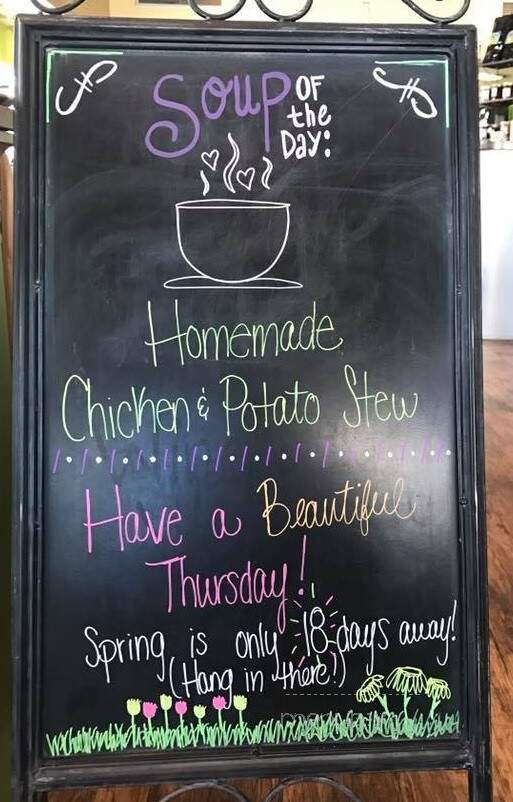 Soup OF
the
Day:
Homemade
Chicken & Potato Stew
Have a Beautiful
Thursday!
Spring is only 18 days away!
(Hang in there!)